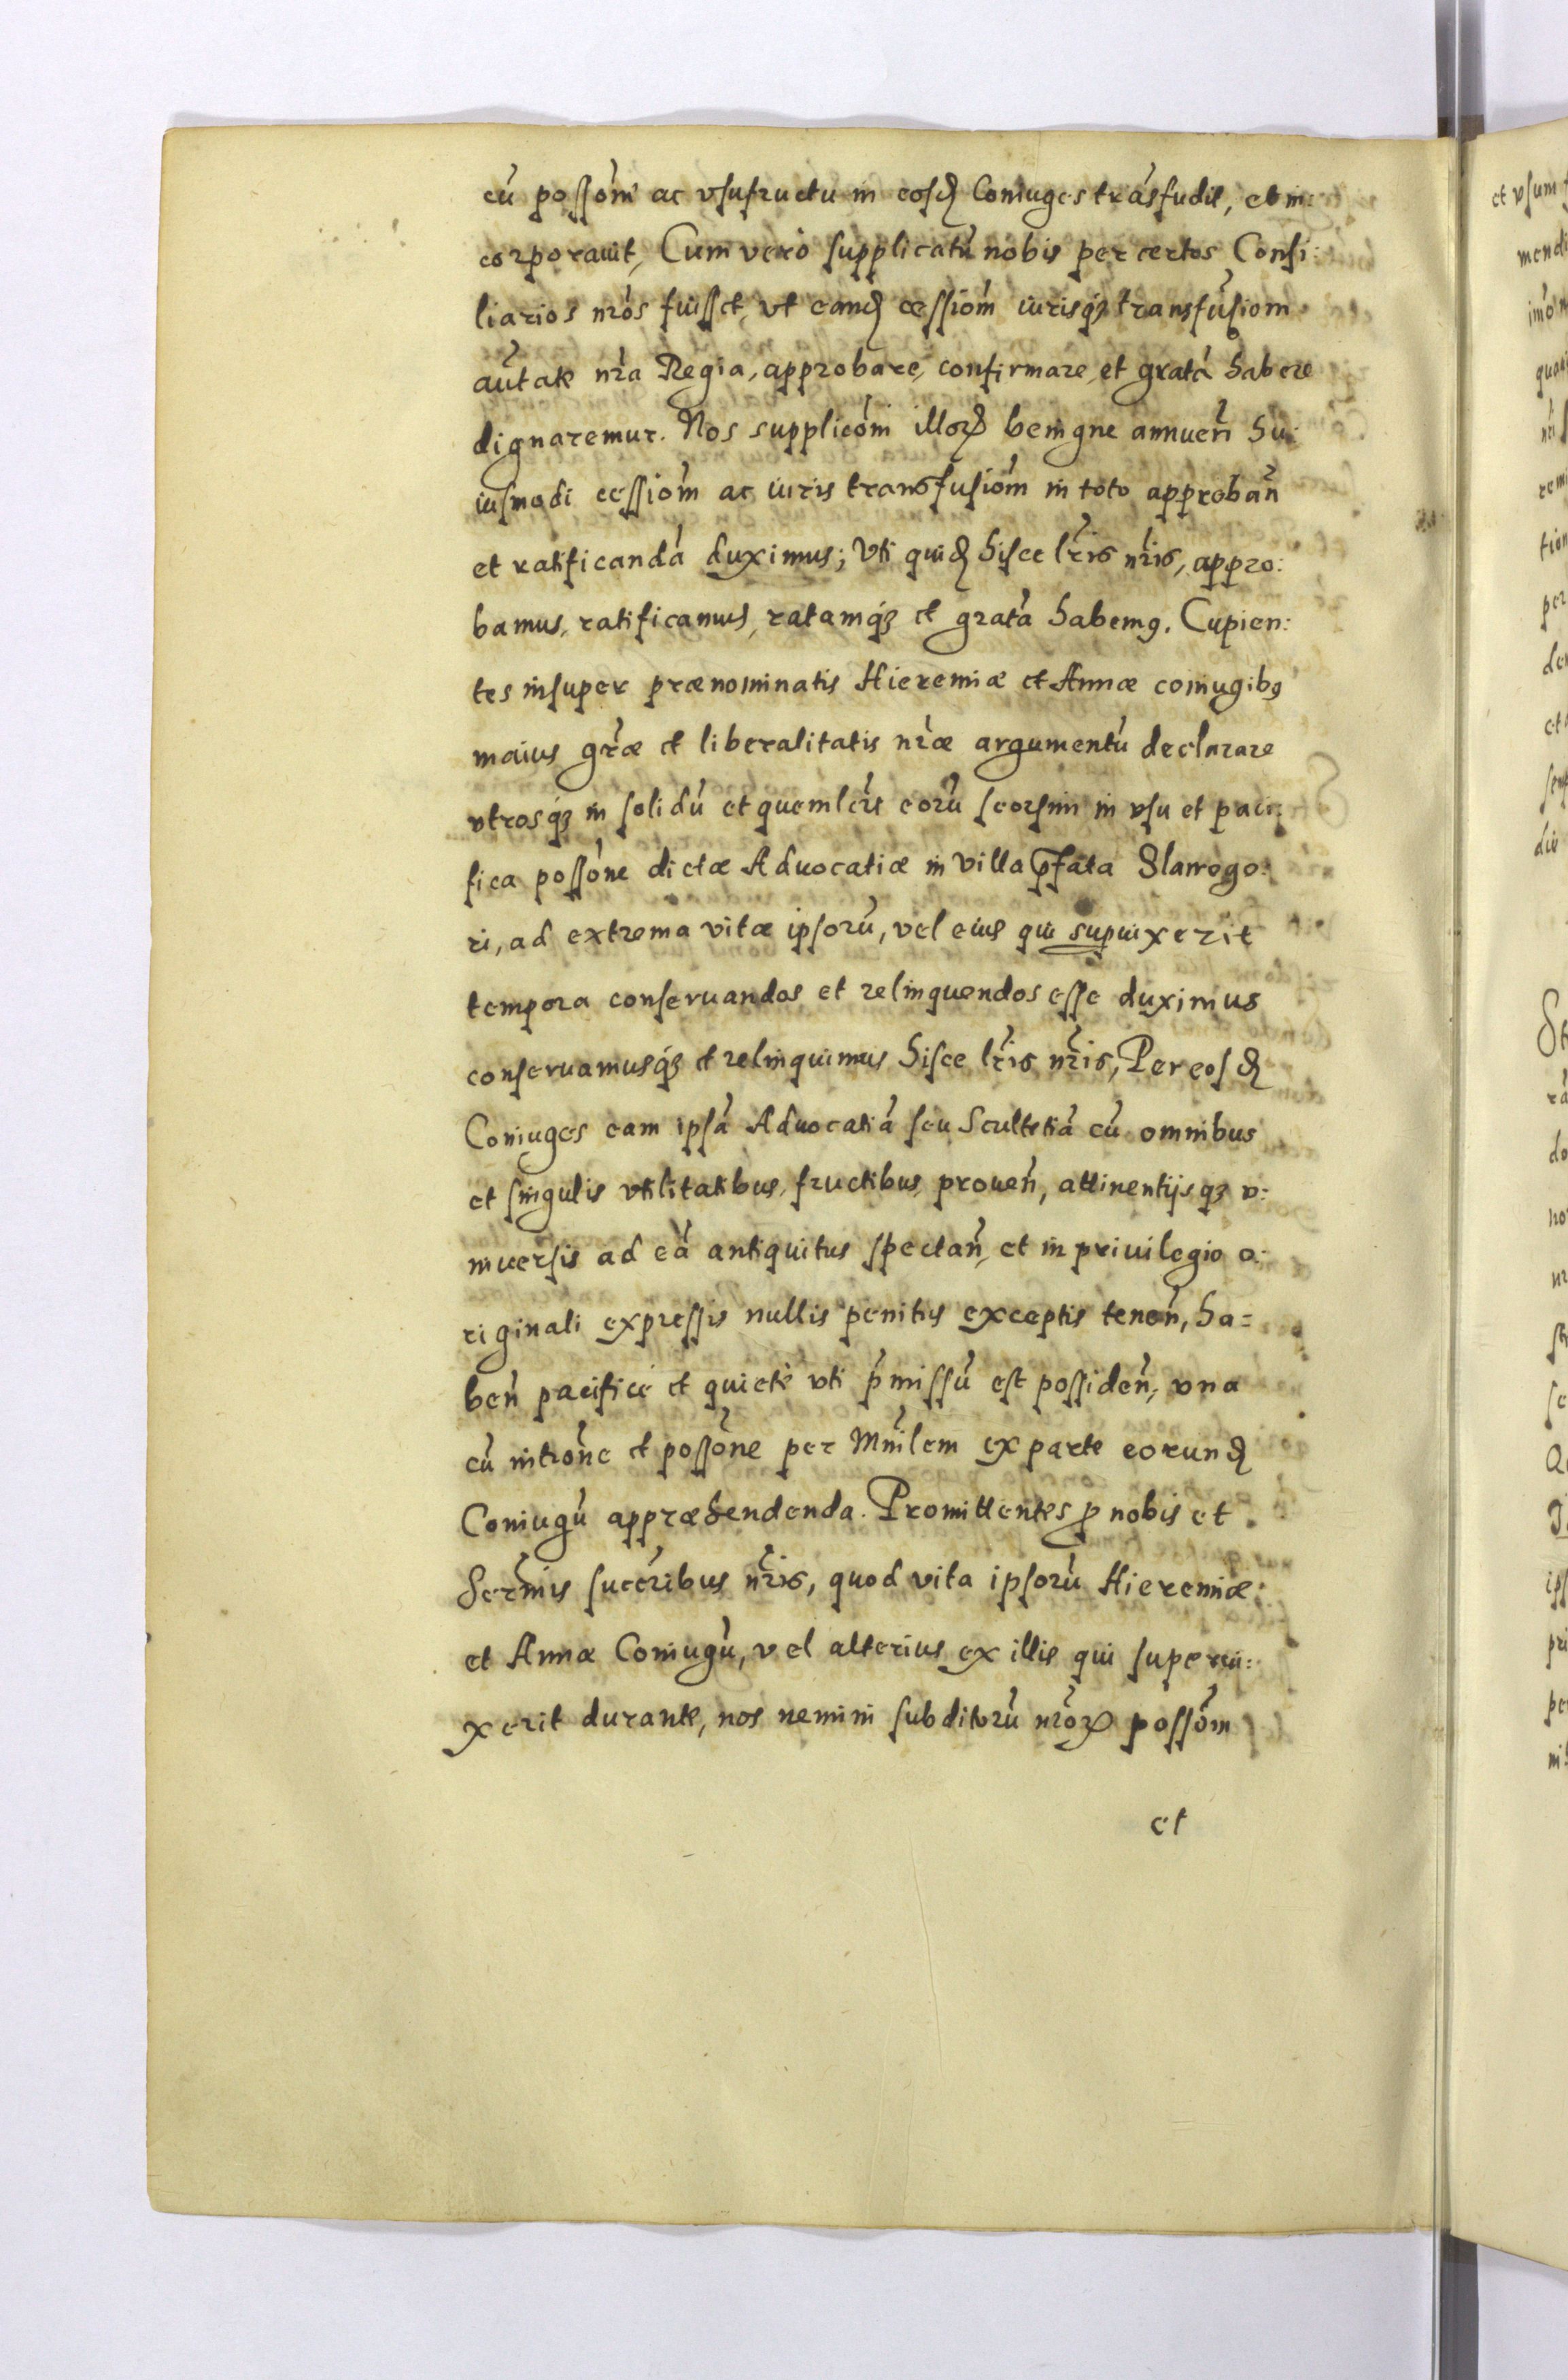 cū possōm ac vsufructu in eosđ Coniuges trāsfudit, et in:
corporauit, Cum vero supplicatū nobis per certos Consi:
liarios nr̄os fuisset, vt eandđ cessiōm iurisq́ȝ transfusiōm
aūtate nr̄a Regia, approbare, confirmare, et gratā habere
dignaremur. Nos supplicōm illoꝝ benigne annueń hu:
iusmodi cessiōm ac iuris transfusiōm in toto approbań
et ratificandā duximus; Vti quidđ hisce lr̄is nr̄is, appro:
bamus, ratificamus, ratamq́ȝ et gratā habemꝰ. Cupien:
tes insuper prænominatis Hieremiæ et Annæ coniugibꝰ
maius gr̄æ et liberalitatis nr̄æ argumentū declarare
vtrosq́ȝ in solidū et quemlr̄t eorū seorsim in vsu et paci:
fica possōne dictæ Aduocatiæ in villa p̄fata Starogo:
ri, ad extrema vitæ ipsorū, vel eius qui supuixerit
tempora conseruandos et relinquendos esse duximus
conseruamusq́ȝ et relinquimus hisce lr̄is nr̄is, Per eosđ
Coniuges eam ipsā Aduocatiā seu Scultetiā cū omnibus
et singulis vtilitatibus, fructibus, proueń, attinentijsqȝ v:
niuersis ad eā antiquitus spectań, et in priuilegio o:
riginali expressis nullis penitus exceptis teneń, ha=
beń pacifice et quiete vti p̄missū est possideń, vna
cū intrōne et possōne per Mnīlem ex parte eorundđ
Coniugū appræhendenda. Promittentes ꝓ nobis et
Serm̄is succr̄ibus nr̄is, quod vita ipsorū Hieremiæ
et Annæ Coniugū, vel alterius ex illis qui superui:
xerit durante, nos nemini subditorū nr̄oꝝ possōm
et